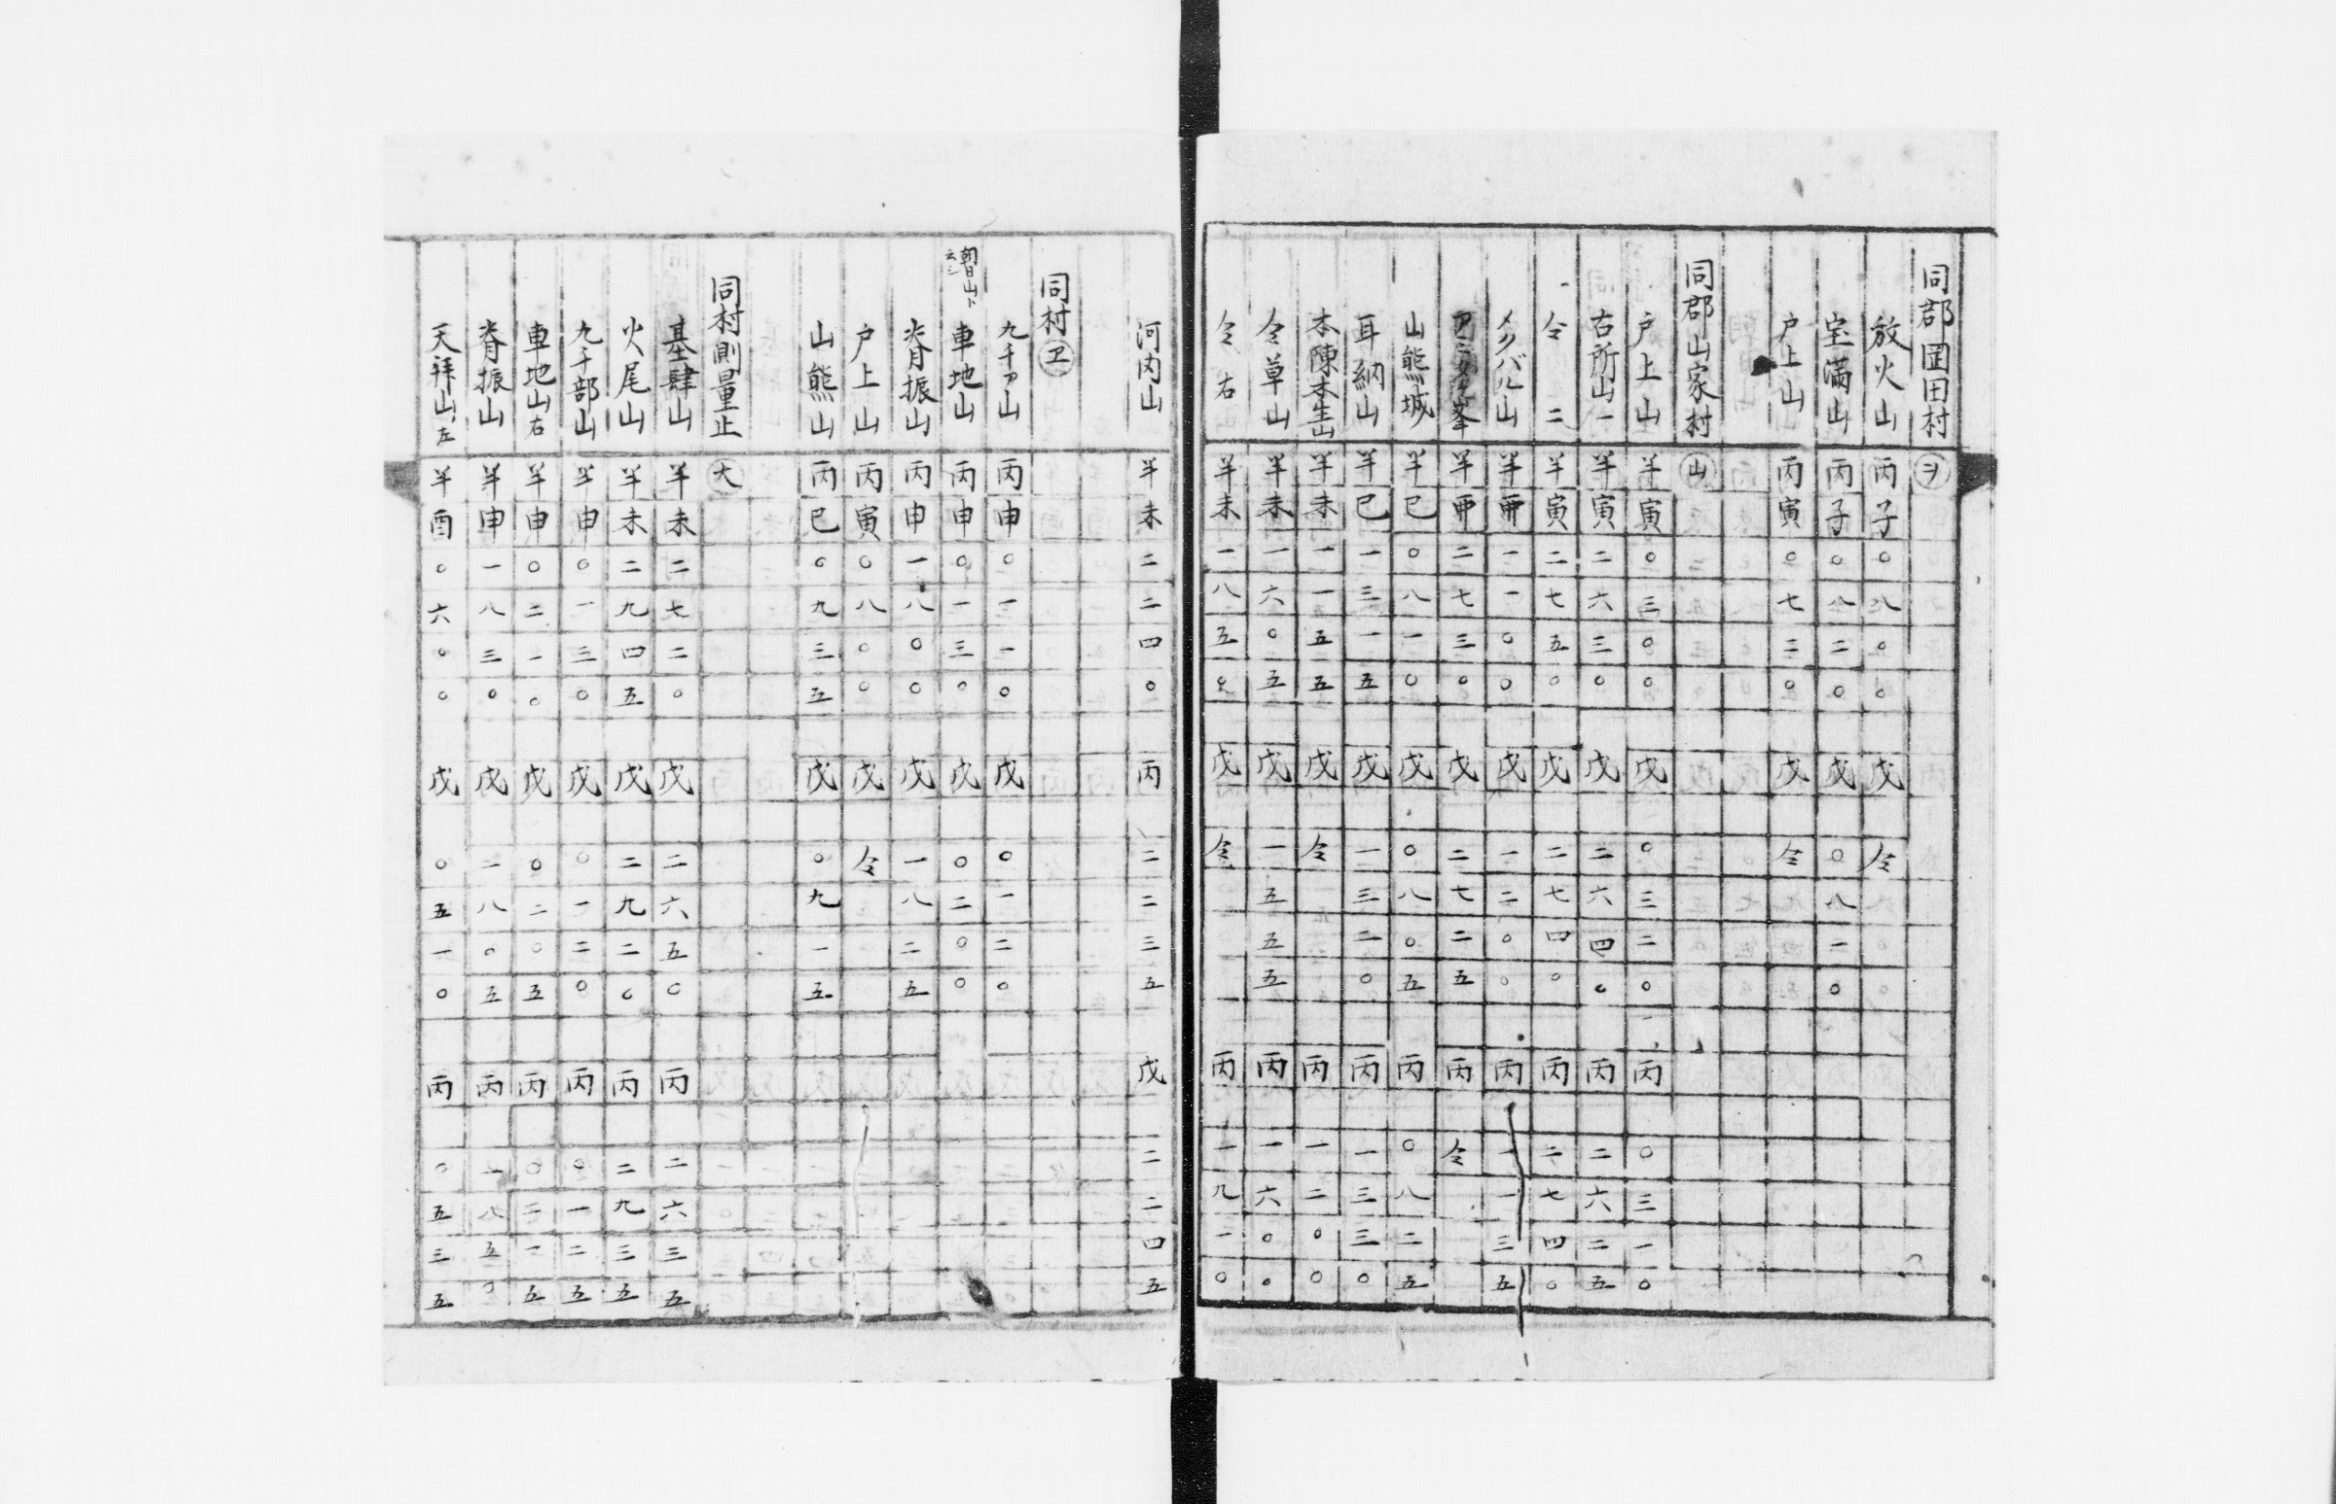 同郡岡田村 ヲ
放火山 丙子〇八〇〇 戊 仝
宝満山 丙子〇八二〇 戊 〇八一〇
戸上山 丙寅〇七二〇 戊 仝
同郡山家村 山
戸上山 半寅〇三〇〇 戊 〇三二〇 丙 〇三一〇
右所山一 半寅二六三〇 戊 二六四〇 丙 二六二五
仝 二 半寅二七五〇 戊 二七四〇 丙 二七四〇
メクバル山 半卯一一〇〇 戊 一二〇〇 丙 一一三五
峯 半卯二七三〇 戊 二七二五 丙 仝
山熊城 半巳〇八一〇 戊 〇八〇五 丙 〇八二五
耳納山 半巳一三一五 戊 一三二〇 丙 一三三〇
本陳木生山 半未一一五五 戊 仝 丙 一二〇〇
仝草山 半未一六〇五 戊 一五五五 丙 一六〇〇
仝 右 半未一八五〇 戊 仝 丙 一九一〇
河内山 半未二二四〇 丙 二二三五 戊 二二四五
同村 ヱ
九千ア山 丙申〇一一〇 戊 〇一二〇
朝日山ト云シ
車地山 丙申〇一三〇 戊 〇二〇〇
脊振山 丙申一八〇〇 戊 一八二五
戸上山 丙寅〇八〇〇 戊 仝
山熊山 丙巳〇九三五 戊 〇九一五
同村測量止 大
基肄山 半未二七二〇 戊 二六五〇 丙 二六三五
火尾山 半未二九四五 戊 二九二〇 丙 二九三五
九千部山 半申〇一三〇 戊 〇一二〇 丙 〇一二五
車地山右 半申〇二一〇 戊 〇二〇五 丙 〇二一五
脊振山 半申一八三〇 戊 一八〇五 丙 一八五〇
天拝山左 半酉〇六〇〇 戊 〇五一〇 丙 〇五三五